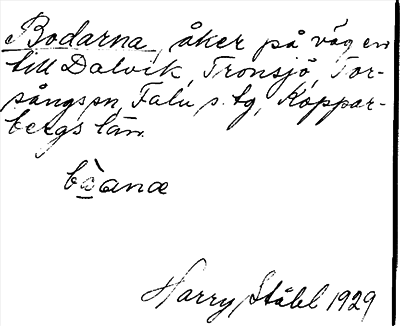 Bodarna, åker på vägen
till Dalvik, Tronsjö, Tor-
sångs sn, Falu s. tg, Koppar-
bergs län.
bòanæ
Harry Ståhl 1929